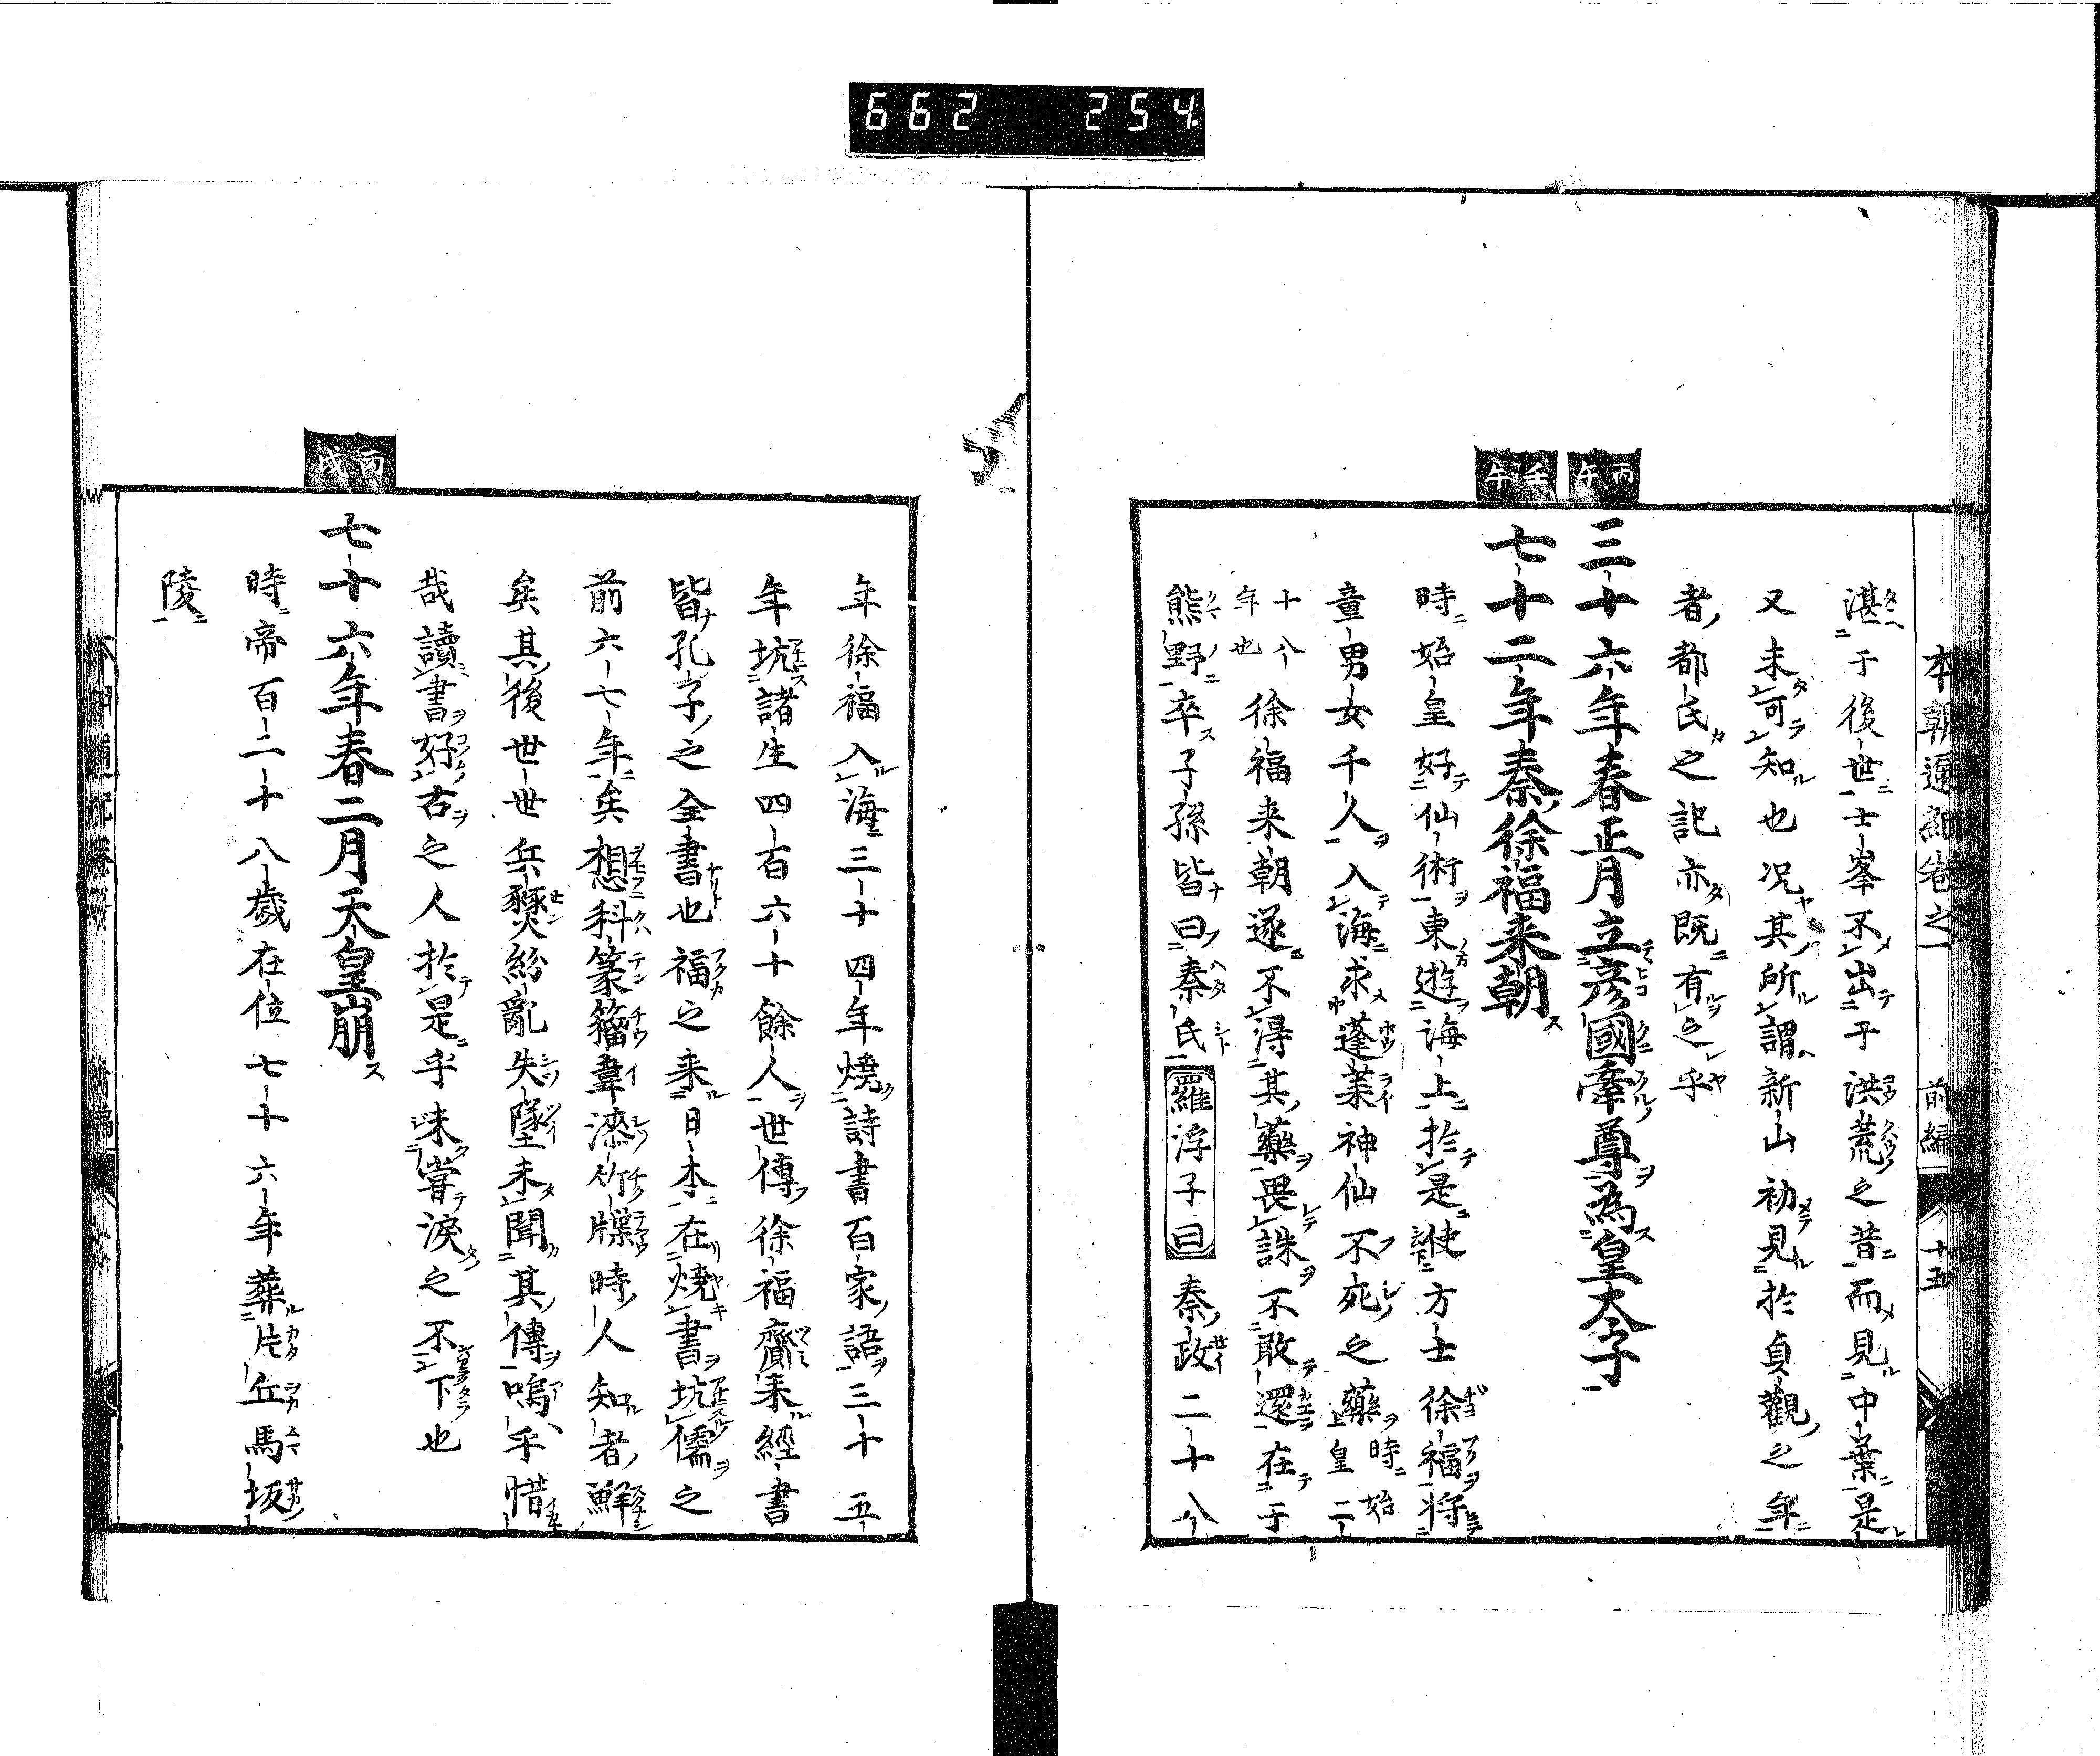 662 254
本朝通紀卷之一 前編 十五
湛于後世士峯不出于洪荒之昔而見中葉是
又未可知也况其所謂新山初見於貞觀之年
者都氏之記亦既有之乎
丙午
三十六年春正月立彦國牽尊為皇太子
壬午
七十二年秦徐福来朝
時始皇好仙術東遊海上於是使方士徐福将
童男女千人入海求蓬莱神仙不死之藥時始皇二
十八年也徐福来朝遂不得其藥畏誅不敢還在于
熊野卒子孫皆曰秦氏羅浮子曰秦政二十八
年徐福入海三十四年燒詩書百家語三十五
年坑諸生四百六十餘人世傳徐福齎来經書
皆孔子之全書也福之来日本在燒書坑儒之
前六七年矣想科篆籀韋漆竹牒時人知者鮮
矣其後世世兵燹紛亂失墜未聞其傳嗚乎惜
哉讀書好古之人於是乎未嘗淚之不下也
丙戌
七十六年春二月天皇崩
時帝百二十八歲在位七十六年葬片丘馬坂
陵